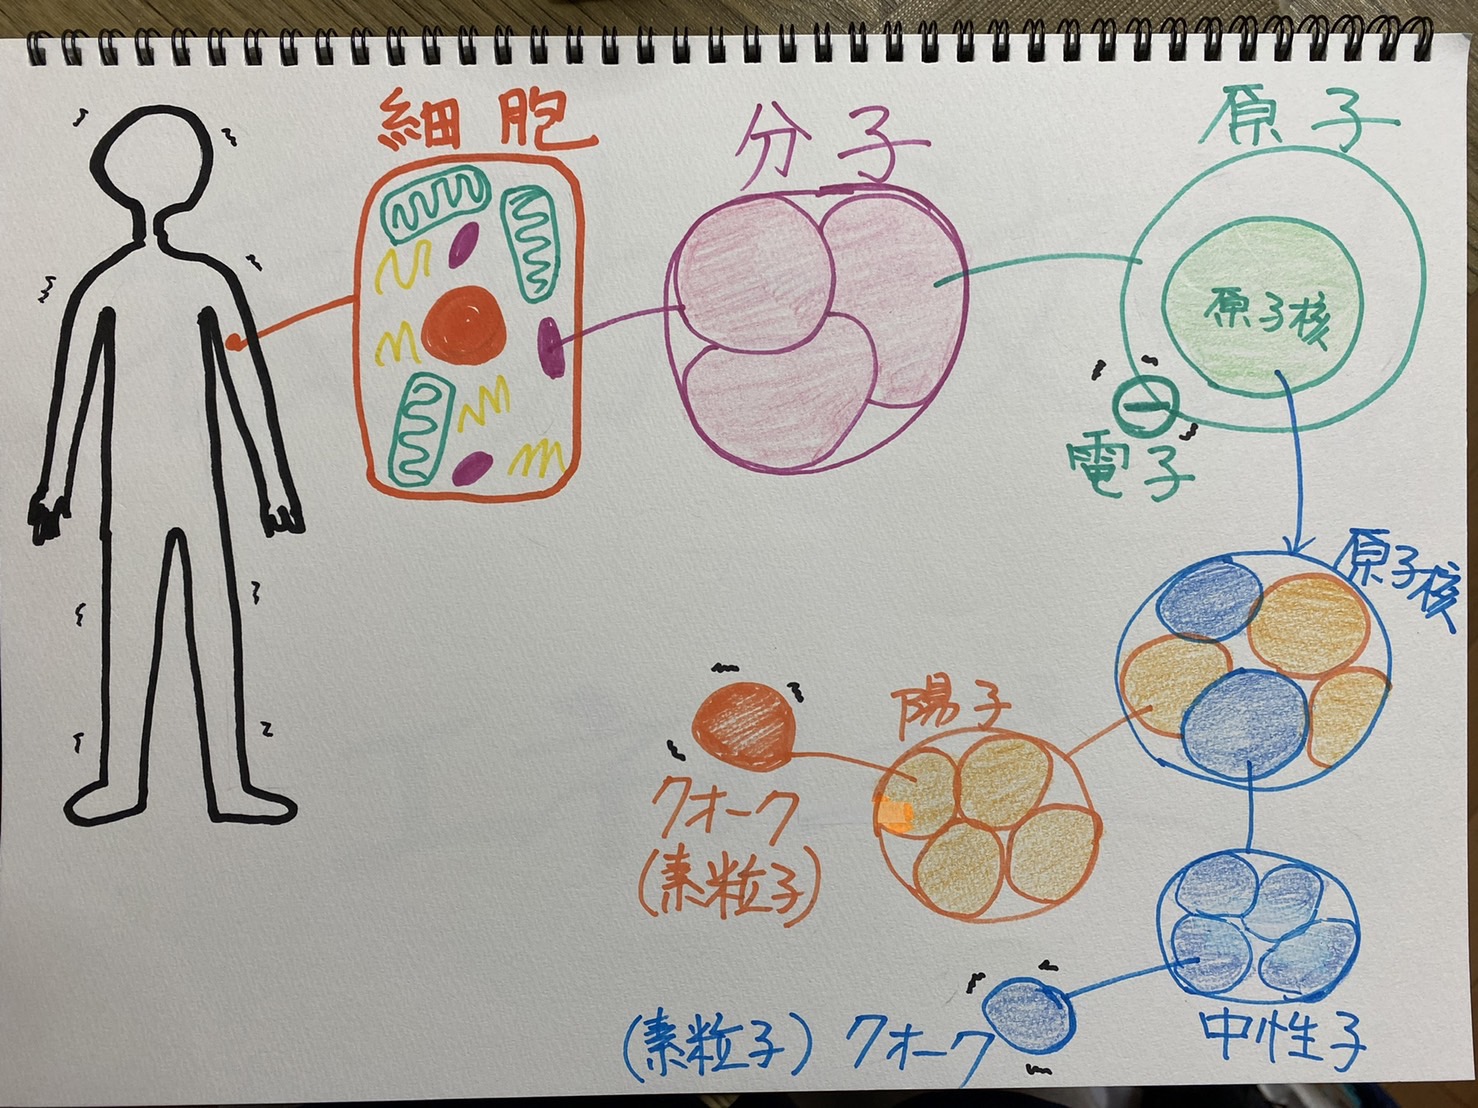 細胞
分子
原子
原子核
電子
原子核
陽子
クォーク
(素粒子)
中性子
(素粒子) クォーク